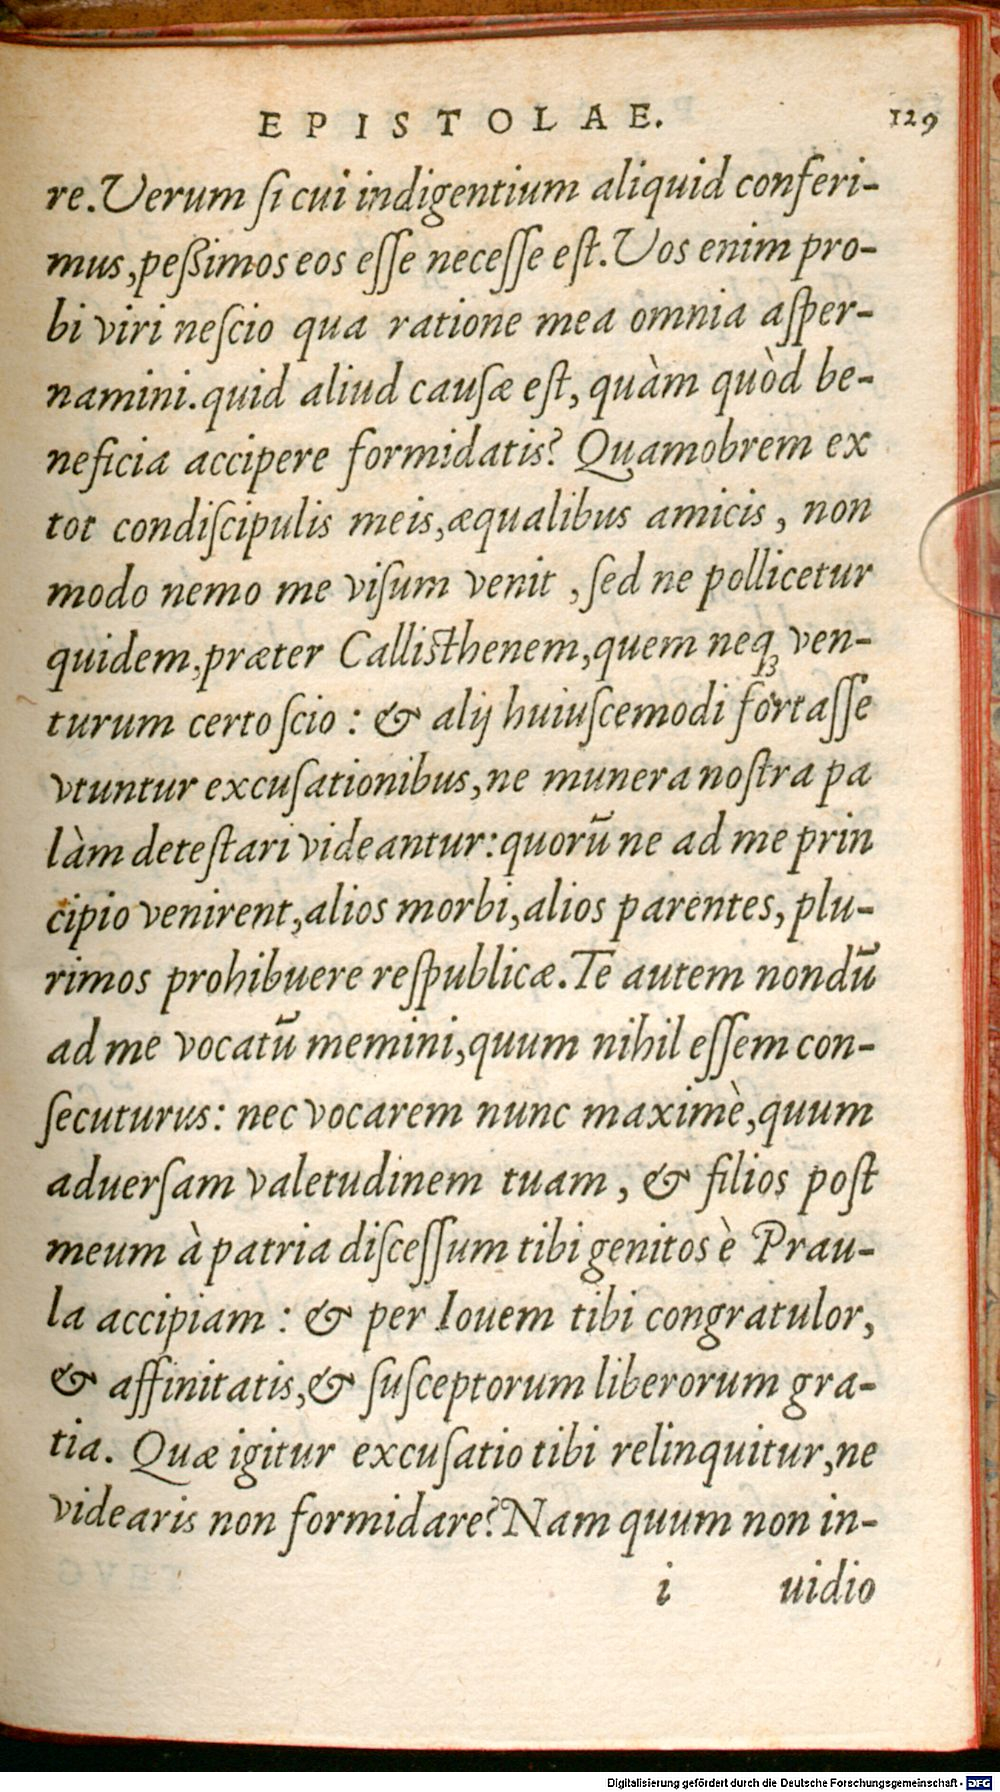 EPISTOLAE. 129
re. Verum ſi cui indigentium aliquid conferi-
mus, peßimos eos eſſe neceſſe eſt. Vos enim pro-
bi viri neſcio qua ratione mea omnia aſper-
namini. quid aliud cauſæ eſt, quàm quòd be-
neficia accipere formidatis? Quamobrem ex
tot condiſcipulis meis, æqualibus amicis, non
modo nemo me viſum venit, ſed ne pollicetur
quidem, præter Calliſthenem, quem neqꝫ ven-
turum certo ſcio: & alij huiuſcemodi fortaſſe
vtuntur excuſationibus, ne munera noſtra pa
làm deteſtari videantur: quorū ne ad me prin
cipio venirent, alios morbi, alios parentes, plu-
rimos prohibuere reſpublicæ. Te autem nondū
ad me vocatū memini, quum nihil eſſem con-
ſecuturus: nec vocarem nunc maximè, quum
aduerſam valetudinem tuam, & filios poſt
meum à patria diſceſſum tibi genitos è Prau-
la accipiam: & per Iouem tibi congratulor,
& affinitatis, & ſuſceptorum liberorum gra-
tia. Quæ igitur excuſatio tibi relinquitur, ne
videaris non formidare? Nam quum non in-
i uidio
Digitalisierung gefördert durch die Deutsche Forschungsgemeinschaft - DFG